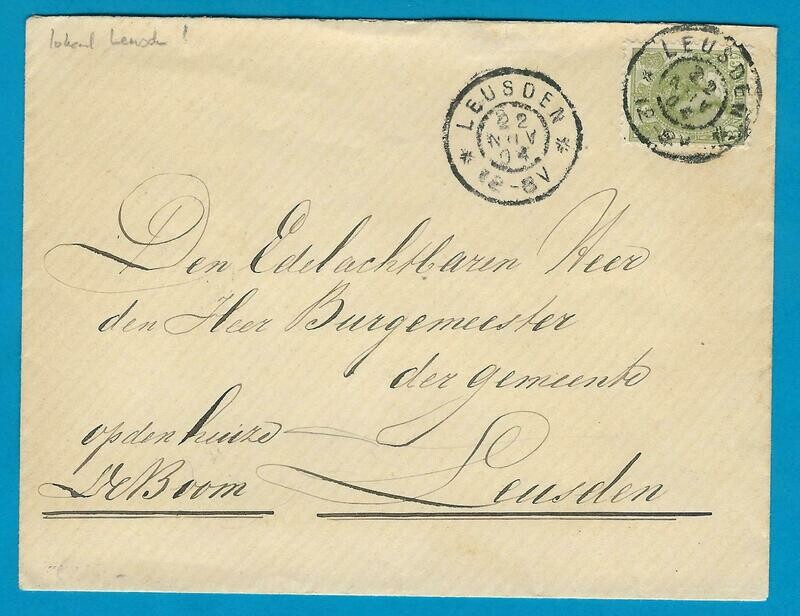 lokaal Leusden!
LEUSDEN
22
NOV
04
12-8V
LEUSDEN
22
NOV
04
12-8V
Den Edelachtbaren Heer
den Heer Burgemeester
der gemeente
op den huize
De Boom Leusden